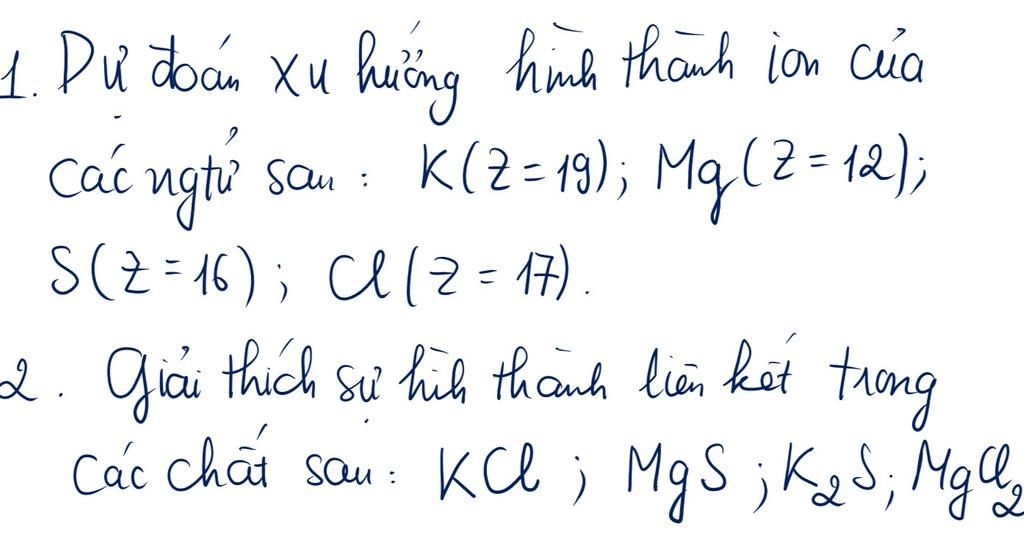 1. Dự đoán xu hướng hình thành ion của
các ngtử sau: K(Z=19); Mg(Z=12);
S(Z=16); Cl(Z=17).
2. Giải thích sự hình thành liên kết trong
các chất sau: KCl; MgS; K₂S; MgCl₂